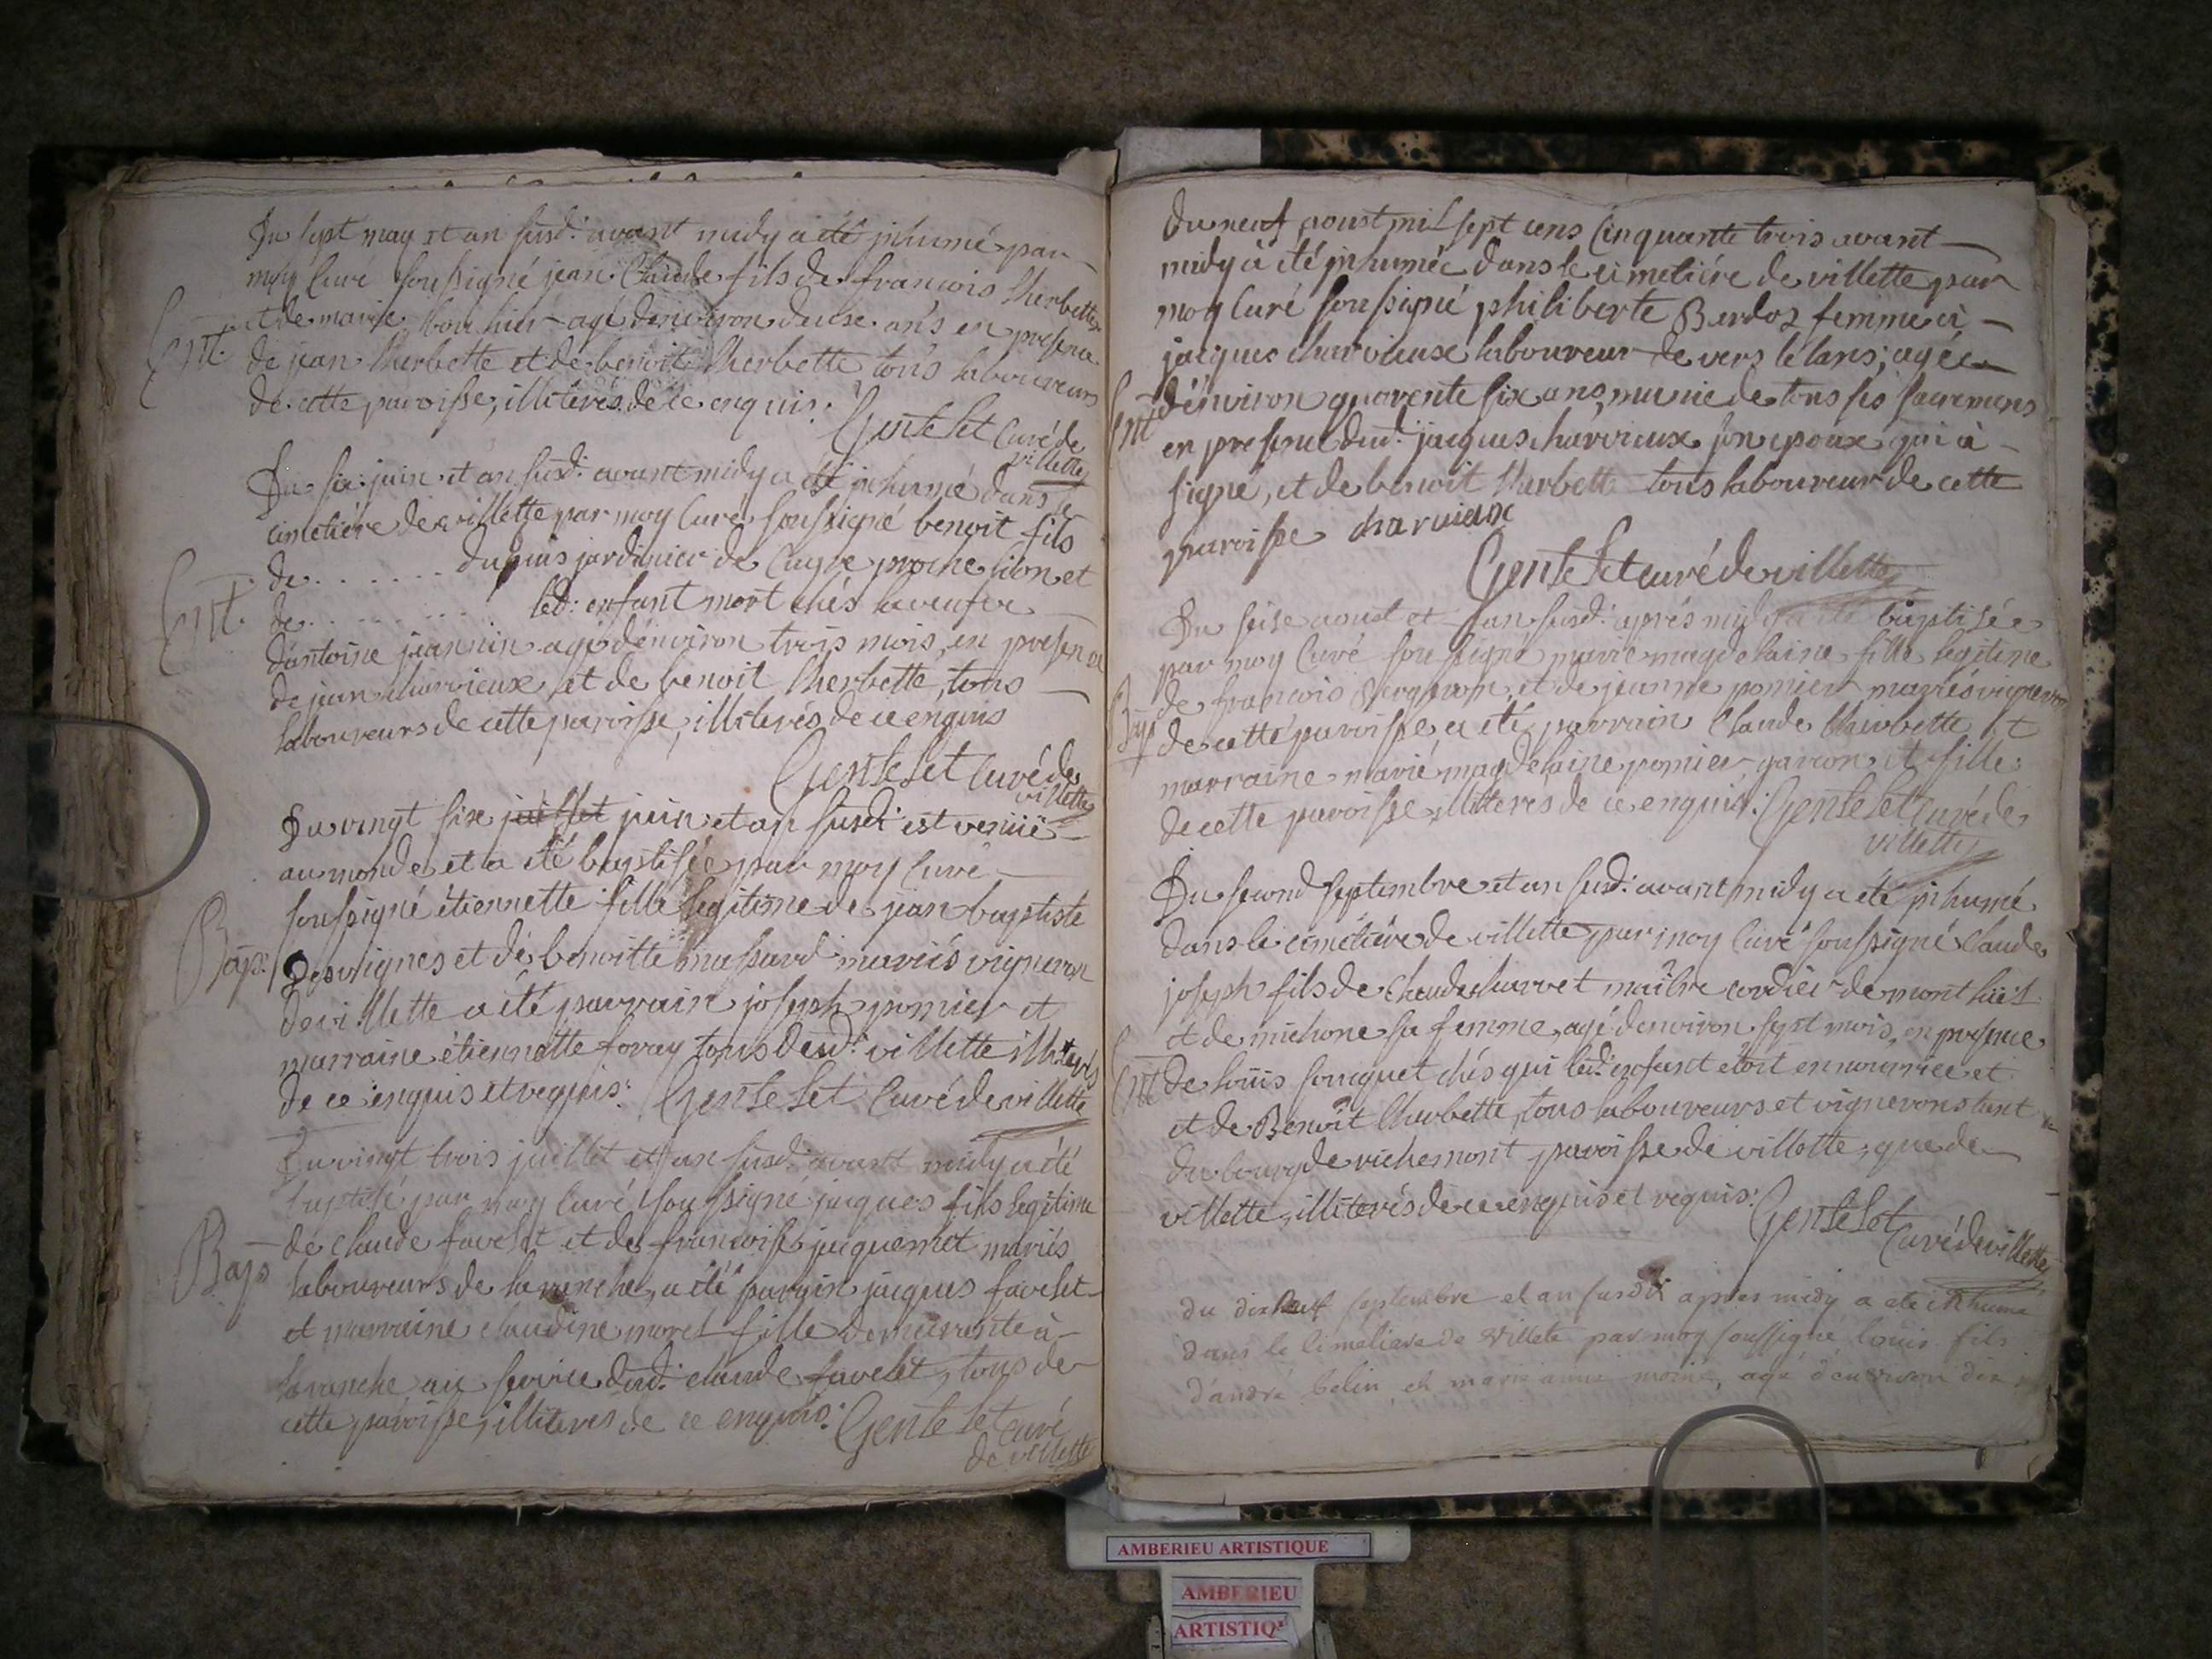 Du sept may et an susd: avant midy a été inhumé par
moy Curé soussigné jean Claude fils de francois Lherbette
et de marie bouchier agé denviron deuse ans en presence
Ent.
de jean Lherbette et de benoit Lherbette tous laboureurs
de cette paroisse, illiterés de ce enquis:
Gentelet Curé de
villette
Du six juin et an susd: avant midy a été inhumé dans le
cimetiére de villette par moy Curé soussigné benoit fils
de . . . . . . . dupuis jardinier de Cuyre proche lion et
Ent.
de . . . . . . . . . . led: enfant mort chés la veufve
dantoine jeannin agé dénviron trois mois, en presence
de jean charvieux et de benoit Lherbette, tous
laboureurs de cette paroisse, illiterés de ce enquis
Gentelet Curé de
villette
Du vingt six juillet juin et an susd: est venüe
au monde et a été baptisée par moy Curé
soussigné étiennette fille legitime de jean baptiste
Bap:
Desvignes et dé benoitte musard mariés vigneron
de villette a été parrain joseph pomier et
marraine étiennette foray tous dud: villette illiterés
de ce enquis et requis: Gentelet Curé de villette
Du vingt trois juillet et an susd: avant midy a été
baptisé par moy Curé soussigné jacques fils legitime
Bap
de claude favelet et de francoise jacquemet mariés
laboureurs de la ranche, a été parrain jacques favelet
et marraine claudine morel fille demeurente à
la ranche au service dud: claude favelet, tous de
cette paroisse, illiterés de ce enquis: Gentelet Curé
de villette
Du neuf aoust mil sept cens Cinquante trois avant
midy à été inhumée dans le cimetiére de villette par
moy Curé soussigné philiberte Berdoz femme à
jacques charvieux laboureur de vers le lans, agée
Ent
dénviron quarente six ans, munie de tous ses sacremens
en presence dud: jacques charvieux son epoux qui à
signé, et de benoit Lherbette tous laboureur de cette
paroisse charvieux
Gentelet curé de villette
Du seise aoust et an susd: aprés midy a été baptisée
par moy Curé soussigné marie magdelaine fille legitime
de francois et de jeanne pomier mariés vigneron
Bap
de cette paroisse a été parrain Claude Lherbette et
marraine marie magdelaine pomier, garcon et fille
de cette paroisse illiterés de ce enquis: Gentelet Curé de
villette
Du second septembre et an susd: avant midy a été inhumé
dans le cimetiére de villette par moy Curé soussigné Claude
joseph fils de claude charvet maître cordier de mont lüel
et de michone sa femme, agé denviron sept mois, en presence
Ent
de loüis fouquet chés qui led: enfant étoit en nourrice et
et de Benoit Lherbette, tous laboureurs et vignerons tant
du bourg de richemont paroisse de villette, que de
villette, illiterés de ce enquis et requis: Gentelet
Curé de villette
du dix neuf septembre et an susdit apres midy a ete inhumé
dans le cimetiere de villete par moy soussigné louis fils
d'andré belin et marie anne moine, agé d'environ dix
AMBERIEU ARTISTIQUE
AMBERIEU
ARTISTIQ